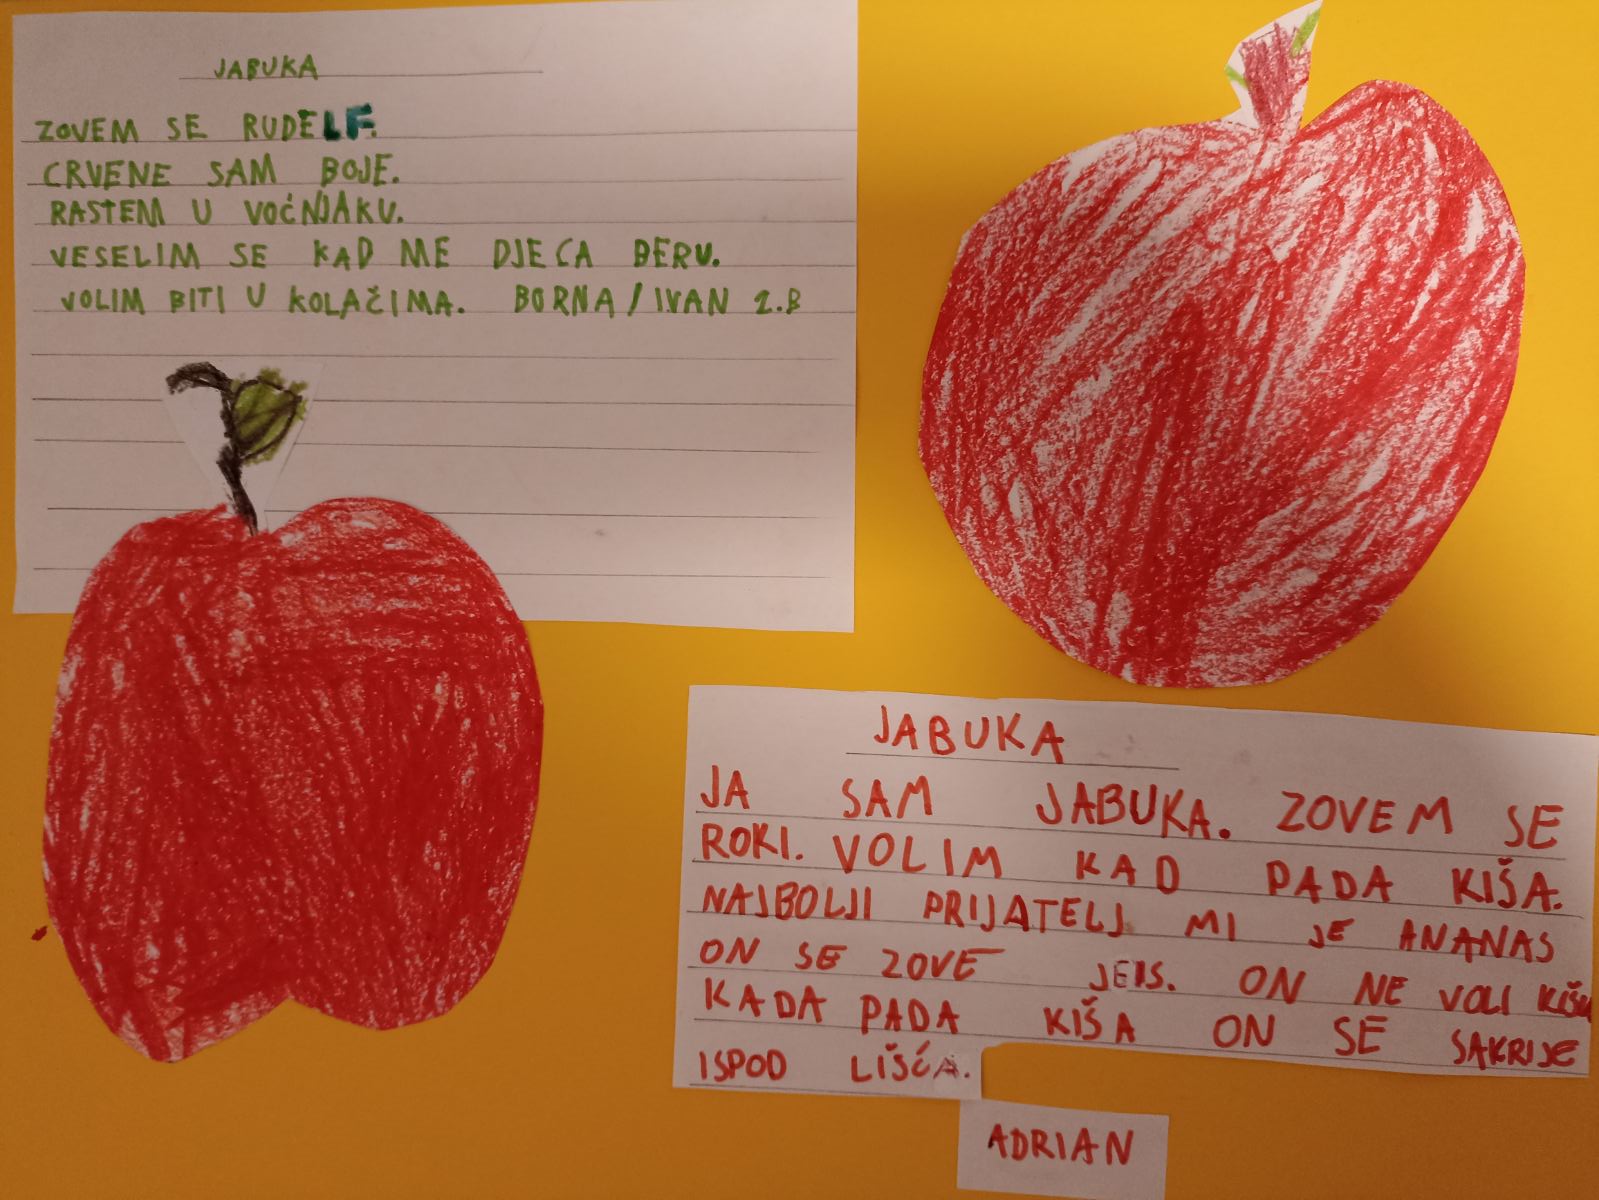 JABUKA
ZOVEM SE RUDELF.
CRVENE SAM BOJE.
RASTEM U VOĆNJAKU.
VESELIM SE KAD ME DJECA BERU.
VOLIM BITI U KOLAČIMA. BORNA/IVAN 2.B
JABUKA
JA SAM JABUKA. ZOVEM SE
ROKI. VOLIM KAD PADA KIŠA.
NAJBOLJI PRIJATELJ MI JE ANANAS
ON SE ZOVE JEIS. ON NE VOLI KIŠU
KADA PADA KIŠA ON SE SAKRIJE
ISPOD LIŠĆA.
ADRIAN